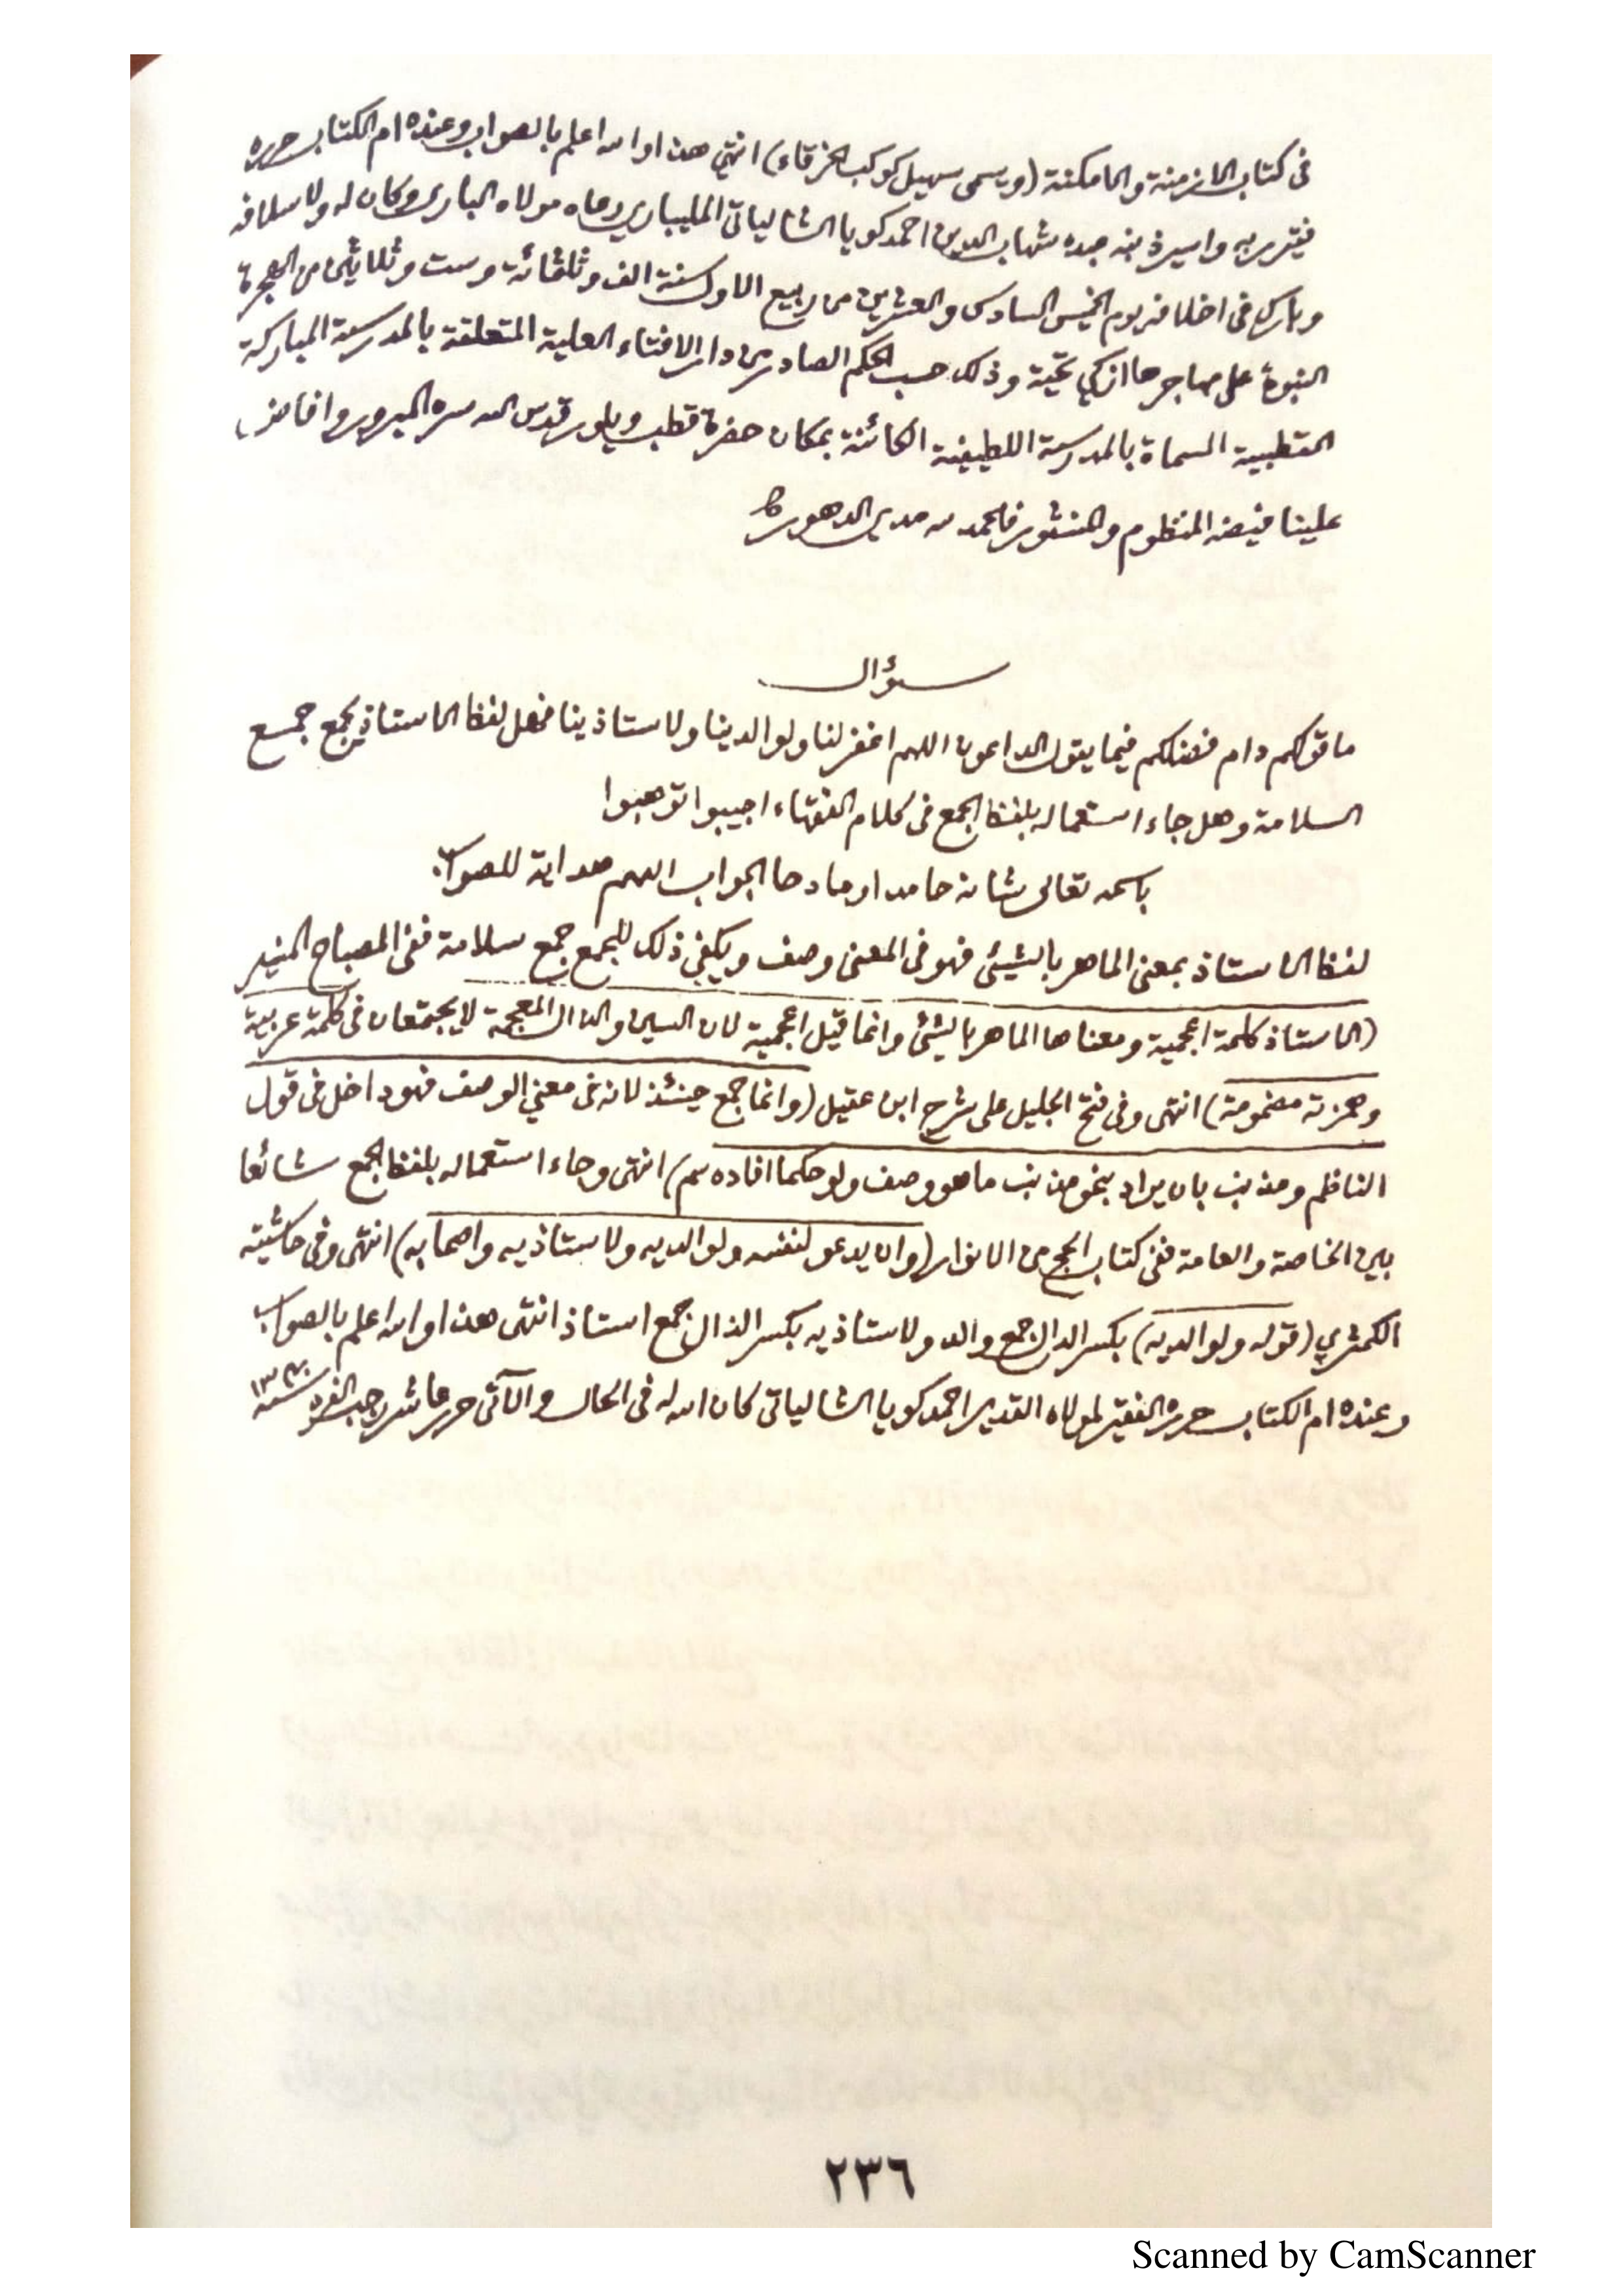 في كتاب الازمنة والامكنة (ويسمى سهيل كوكب الخرقاء) انتهى هذا والله اعلم بالصواب وعنده ام الكتاب حرره
فقير ربه واسير ذنبه عبده شهاب الدين احمد كويا الشالياتي المليباري رعاه مولاه الباري وكان له ولاسلافه
وبارك في اخلافه يوم الخميس السادس والعشرين من ربيع الاول سنة الف وثلثمائة وست وثلاثين من الهجرة
النبوية على مهاجرها ازكى تحية وذلك حسب الحكم الصادر من دار الافتاء العلية المتعلقة بالمدرسة المباركة
القطبية المسماة بالمدرسة اللطيفية الكائنة بمكان حضرة قطب ويلور قدس الله سره المبرور وافاض
علينا فيضه المنظوم والمنثور فالحمد لله مدى الدهور
سؤال
ما قولكم دام فضلكم فيما يقول الداعون اللهم اغفر لنا ولوالدينا ولاستاذينا فهل لفظ الاستاذ يجمع جمع
السلامة وهل جاء استعماله بلفظ الجمع في كلام الفقهاء اجيبوا توهبوا
باسمه تعالى شانه حامدا ومادحا الجواب اللهم هداية للصواب
لفظ الاستاذ بمعنى الماهر بالشيئ فهو في المعنى وصف ويكفي ذلك للجمع جمع سلامة ففي المصباح المنير
(الاستاذ كلمة اعجمية ومعناها الماهر بالشيئ وانما قيل اعجمية لان السين والذال المعجمة لا يجتمعان في كلمة عربية
وهمزته مضمومة) انتهى وفي فتح الجليل على شرح ابن عقيل (وانما جمع حينئذ لانه في معنى الوصف فهو داخل في قول
الناظم ومذنب بان يراد بنحو مذنب ما هو وصف ولو حكما افاده سم) انتهى وجاء استعماله بلفظ الجمع شائعا
بين الخاصة والعامة ففي كتاب الحج من الانوار (وان يدعو لنفسه ولوالديه ولاستاذيه واصحابه) انتهى وفي حاشيته
الكمثري (قوله ولوالديه) بكسر الدال جمع والد ولاستاذيه بكسر الذال جمع استاذ انتهى هذا والله اعلم بالصواب
وعنده ام الكتاب حرره الفقير لمولاه القدير احمد كويا الشالياتي كان الله له في الحال والآتي حرر عاشر رجب الفرد سنة
٢٣٦
Scanned by CamScanner